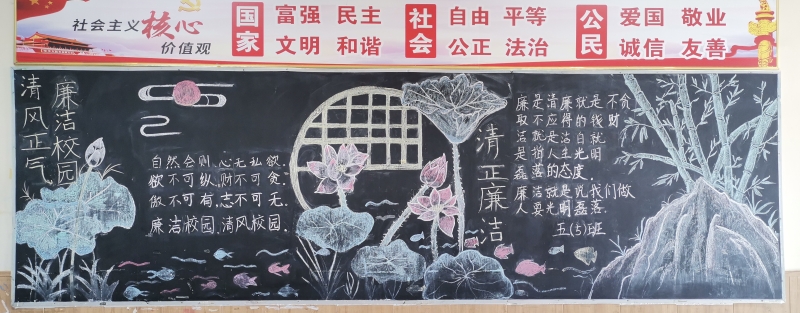 社会主义核心
价值观
国家
富强 民主
文明 和谐
社会
自由 平等
公正 法治
公民
爱国 敬业
诚信 友善
廉洁校园
清风正气
自然会则，心无私欲．
欲不可纵，财不可贪．
傲不可有，志不可无．
廉洁校园，清风校园．
清正廉洁
廉是清廉就是不贪
取不应得的钱财
洁就是洁白就
是指人生光明
磊落的态度．
廉洁就是说我们做
人要光明磊落．
五(5)班